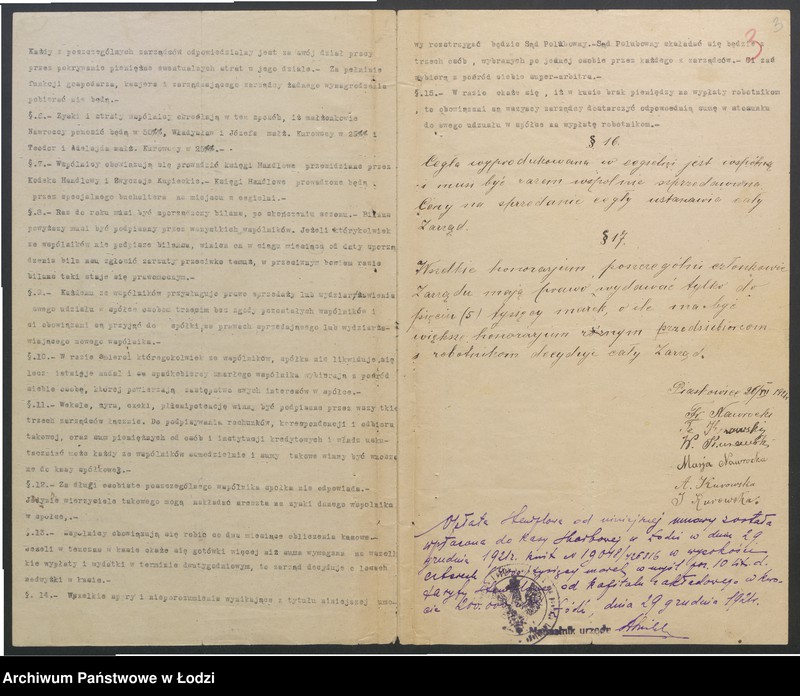 Każdy z poszczególnych zarządców odpowiedzialny jest za swój dział pracy
przez pokrywanie pieniężne ewentualnych strat w jego dziale.- Za pełnienie
funkcji gospodarza, kasjera i zarządzającego zarządcy żadnego wynagrodzenia
pobierać nie będą.-
§.6.- Zyski i straty wspólnicy określają w ten sposób, iż małżonkowie
Nawroccy ponosić będą w 50%, Władysław i Józefa małż. Kurowscy w 25% i
Teodor i Adelajda małż. Kurowscy w 25%.-
§.7.- Wspólnicy obowiązują się prowadzić księgi Handlowe przewidziane przez
Kodeks Handlowy i Zwyczaje Kupieckie.- Księgi Handlowe prowadzone będą
przez specjalnego buchaltera na miejscu w cegielni.-
§.8.- Raz do roku musi być sporządzony bilans, po skończeniu sezonu.- Bilans
powyższy musi być podpisany przez wszystkich wspólników. Jeżeli którykolwiek
ze wspólników nie podpisze bilansu, winien on w ciągu miesiąca od daty sporzą
dzenia bilansu zgłosić zarzuty przeciwko temuż, w przeciwnym bowiem razie
bilans taki staje się prawomocnym.-
§.9.- Każdemu ze wspólników przysługuje prawo sprzedaży lub wydzierżawienia
swego udziału w spółce osobom trzecim bez zgody pozostałych wspólników i
ci obowiązani są przyjąć do spółki w prawach sprzedającego lub wydzierża-
wiającego nowego wspólnika.-
§.10.- W razie śmierci któregokolwiek ze wspólników, spółka nie likwiduje się
lecz istnieje nadal i ze spadkobiercy zmarłego wspólnika wybierają z pośród
siebie osobę, której powierzają zastępstwo swych interesów w spółce.-
§.11.- Weksle, żyra, czeki, plenipotencje winny być podpisane przez wszystkich
trzech zarządców łącznie. Do podpisywania rachunków, korespondencji i odbioru
takowej, oraz sum pieniężnych od osób i instytucji kredytowych i władz
może każdy ze wspólników samodzielnie i sumy takowe winny być
ne do kasy spółkowej.-
§.12.- Za długi osobiste poszczególnego wspólnika spółka nie odpowiada.-
Jedynie wierzyciele takowego mogą nakładać areszta na zyski danego wspólnika
w spółce.-
§.13.- Wspólnicy obowiązują się robić co dwa miesiące obliczenia kasowe.-
Jeżeli w tenczas w kasie okaże się gotówki więcej niż suma wymagana na wszel
kie wypłaty i wydatki w terminie dwutygodniowym, to zarząd decyduje o losach
nadwyżki w kasie.-
§. 14.- Wszelkie spory i nieporozumienia wynikające z tytułu niniejszej umo-
3
3
wy rozstrzygać będzie Sąd Polubowny.- Sąd Polubowny składać się będzie z
trzech osób, wybranych po jednej osobie przez każdego z zarządców.- Ci zaś
wybiorą z pośród siebie super-arbitra.-
§.15.- W razie okaże się, iż w kasie brak pieniędzy na wypłaty robotnikom
to obowiązani są wszyscy zarządcy dostarczyć odpowiednią sumę w stosunku
do swego udziału w spółce na wypłatę robotnikom.-
§ 16.
Cegła wyprodukowana w cegielni jest wspólną
i musi być razem wspólnie sprzedawana.
Ceny na sprzedanie cegły ustanawia cały
Zarząd.
§ 17.
Wszelkie honorarjum, poszczególni członkowie
Zarządu mają prawo wydawać tylko do
pięciu (5) tysięcy marek, o ile ma być
większe honorarjum różnym przedsiębiorcom
i robotnikom decyduje cały Zarząd.
Fr Nawrocki
T. Kurowski
W. Kurowski
Marja Nawrocka
A. Kurowska
J. Kurowska.
Opłata stemplowa od niniejszej umowy została
wpłacona do Kasy Skarbowej w Łodzi w dniu 29
grudnia 1921r. kwit N 19041/ w wysokości
czterech tysięcy marek w myśl poz. 10 lit d.
taryfy od kapitału zakładowego w kwo-
cie 200.000 Łódź, dnia 29 grudnia 1921r.
Naczelnik urzędu
Archiwum Państwowe w Łodzi